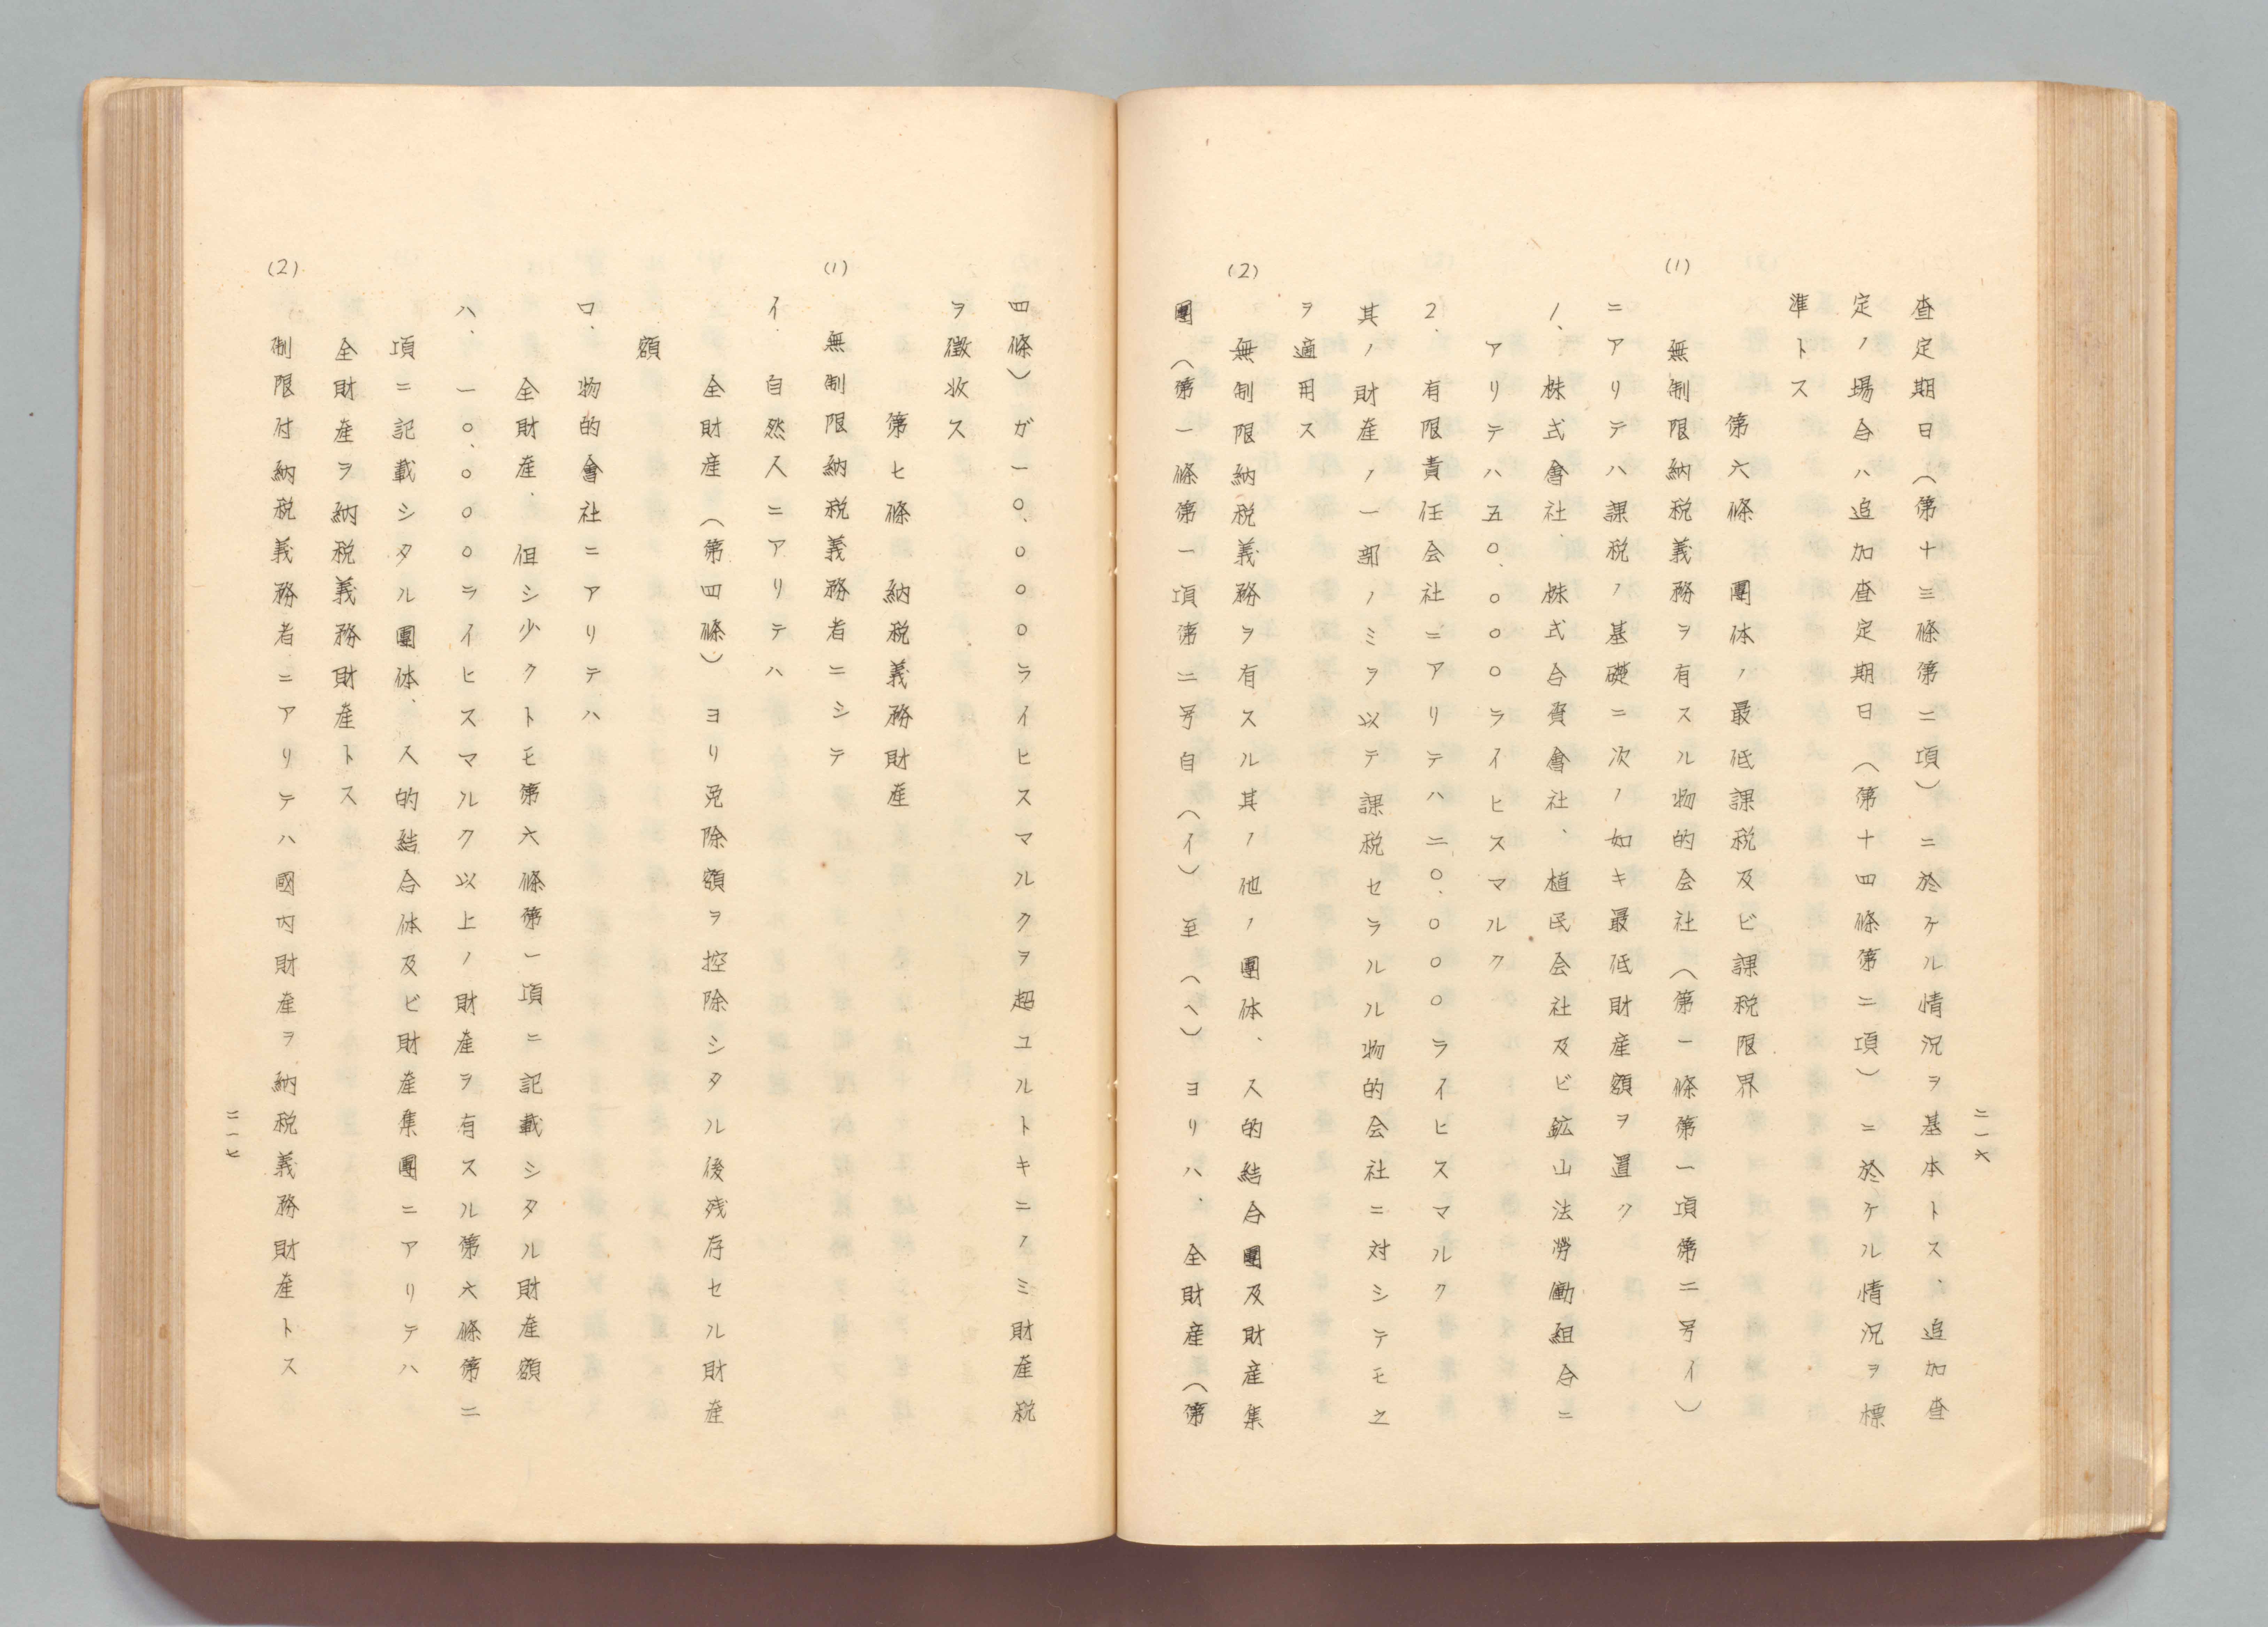 二一六
査定期日（第十三條第二項）ニ於ケル情況ヲ基本トス、追加査
定ノ場合ハ追加査定期日（第十四條第二項）ニ於ケル情況ヲ標
準トス
第六條　團体ノ最低課税及ビ課税限界
(1)　無制限納税義務ヲ有スル物的会社（第一條第一項第二号イ）
ニアリテハ課税ノ基礎ニ次ノ如キ最低財産額ヲ置ク
1、株式會社、株式合資會社、植民会社及ビ鉱山法労働組合ニ
アリテハ五〇、〇〇〇ライヒスマルク
2、有限責任会社ニアリテハ二〇、〇〇〇ライヒスマルク
其ノ財産ノ一部ノミヲ以テ課税セラルル物的会社ニ対シテモ之
ヲ適用ス
(2)　無制限納税義務ヲ有スル其ノ他ノ團体、人的結合團及財産集
團（第一條第一項第二号自（イ）至（ヘ）ヨリハ、全財産（第
四條）ガ一〇、〇〇〇ライヒスマルクヲ超ユルトキニノミ財産税
ヲ徴収ス
第七條　納税義務財産
(1)　無制限納税義務者ニシテ
イ、自然人ニアリテハ
全財産（第四條）ヨリ免除額ヲ控除シタル後残存セル財産
額
ロ、物的會社ニアリテハ
全財産、但シ少クトモ第六條第一項ニ記載シタル財産額
ハ、一〇、〇〇〇ライヒスマルク以上ノ財産ヲ有スル第六條第二
項ニ記載シタル團体、人的結合体及ビ財産集團ニアリテハ
全財産ヲ納税義務財産トス
(2)　制限付納税義務者ニアリテハ國内財産ヲ納税義務財産トス
二一七